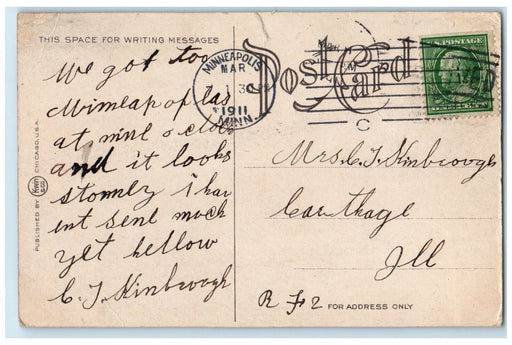 THIS SPACE FOR WRITING MESSAGES
We got too
Minneapolas
at nine o clock
and it looks
stormey i hav
ent sene much
yet hellow
C. J. Kinbrough
PUBLISHED BY
CHICAGO, U.S.A.
MINNEAPOLIS
MAR
1911
MINN.
Post Card
U.S. POSTAGE
C
Mrs. C. J. Kinbrough
Carthage
Ill
R F 2
FOR ADDRESS ONLY